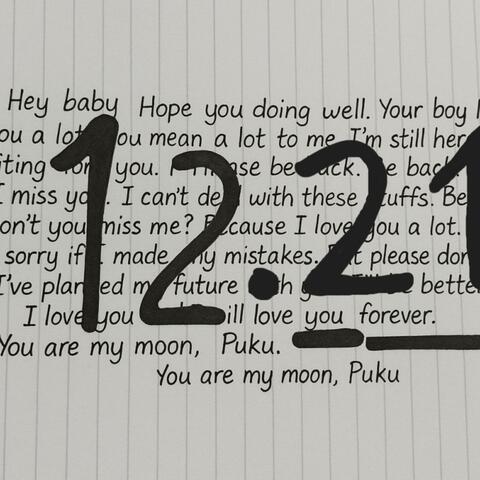 Hey baby Hope you doing well. Your boy
ou a lot ou mean a lot to me. I'm still her
iting for you. be back. e back
I miss you. I can't deal with these tuffs. Be
on't you miss me? Because I love you a lot.
sorry if I made my mistakes. But please don
I've planned my future bette
I love you ill love you forever.
You are my moon, Puku.
You are my moon, Puku
12.21